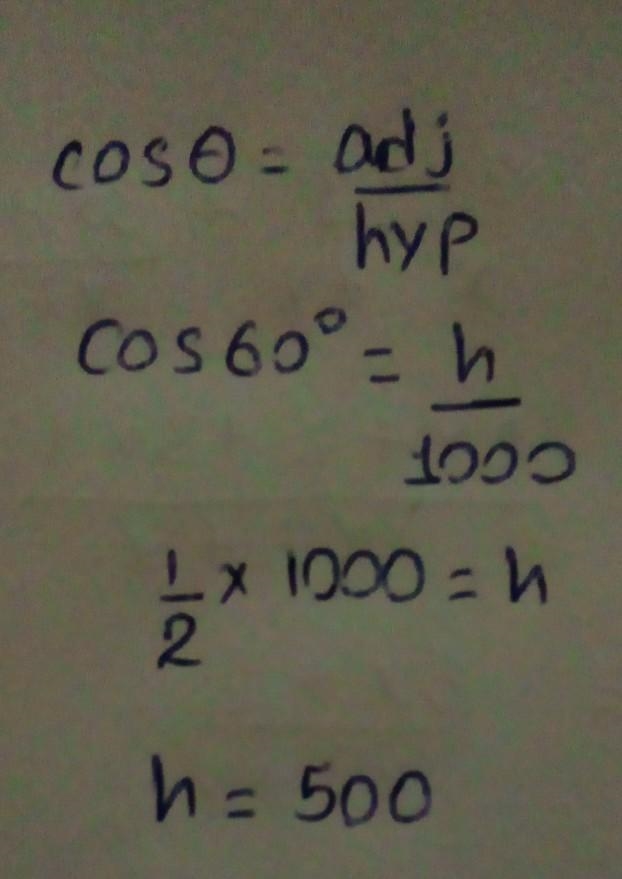 cosθ = adj/hyp
cos60° = h/1000
1/2 × 1000 = h
h = 500